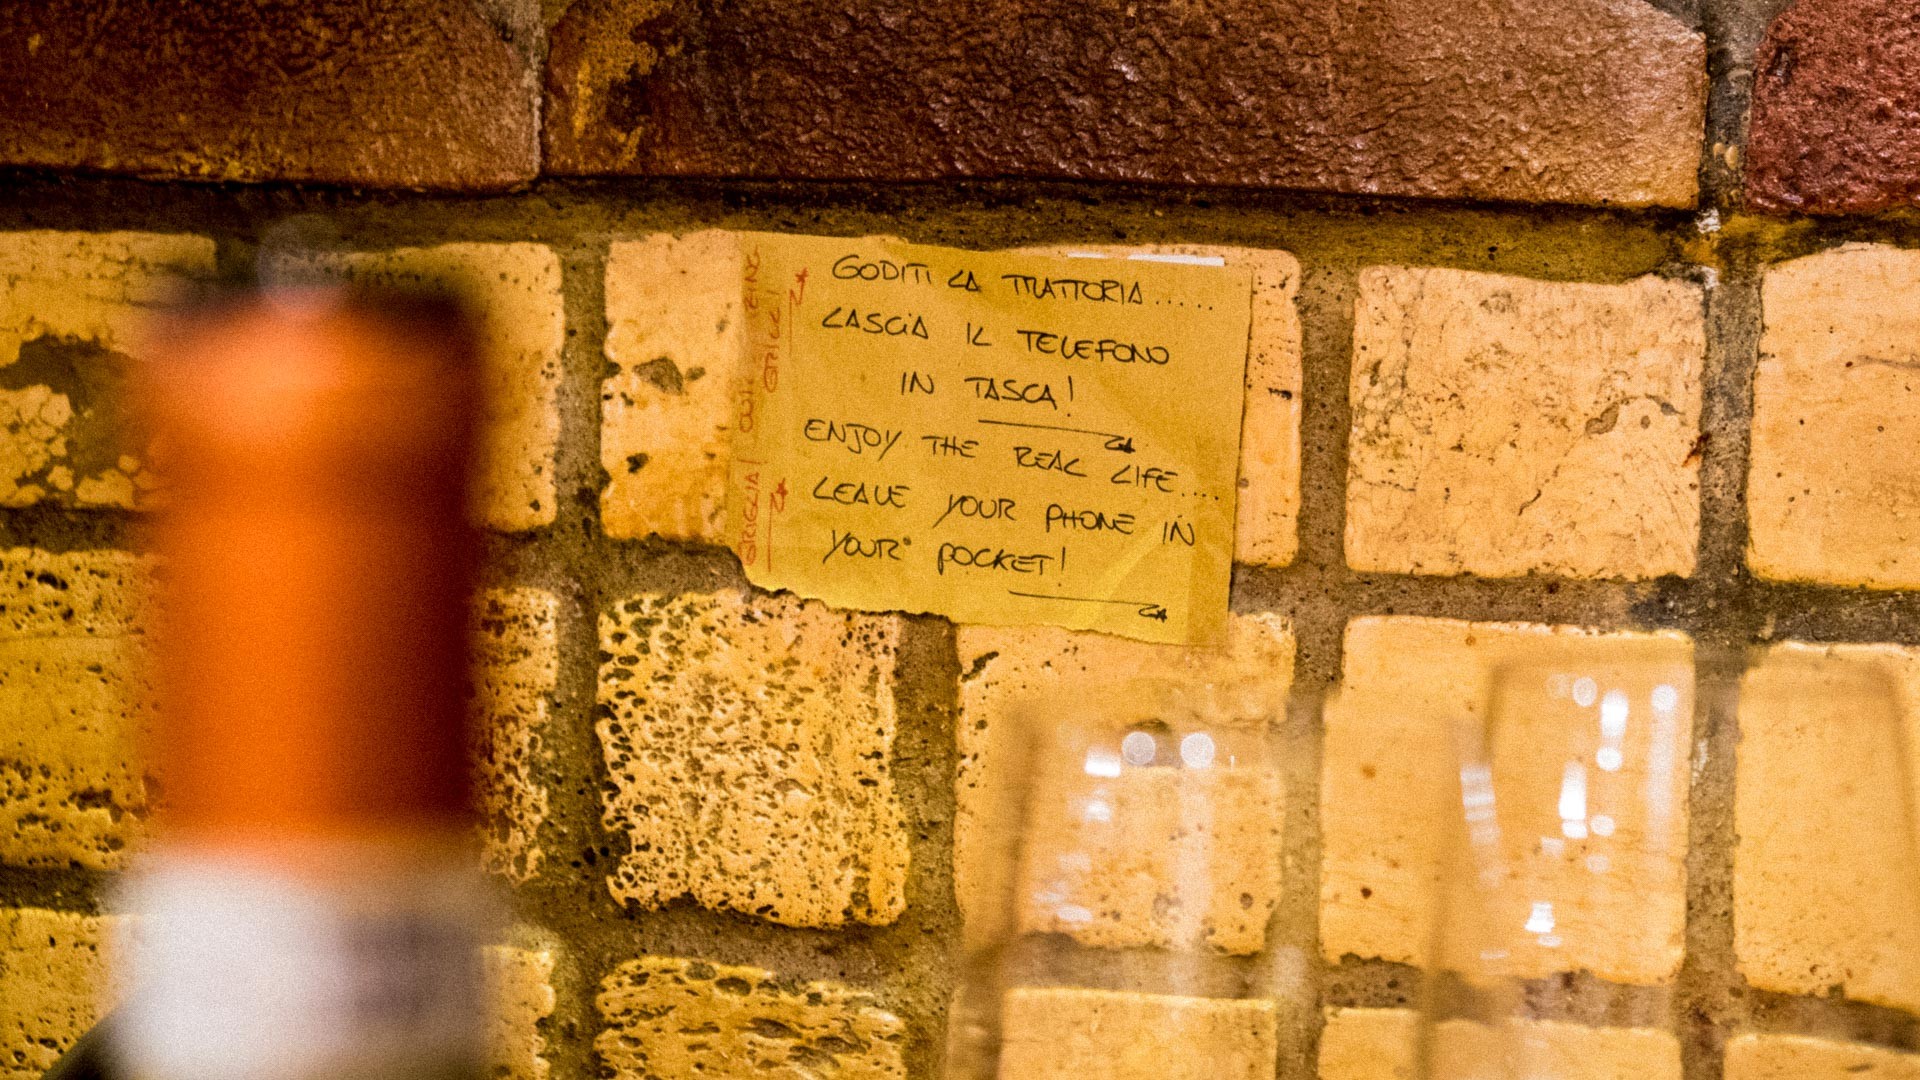 GODITI LA TRATTORIA.....
LASCIA IL TELEFONO
IN TASCA!
ENJOY THE REAL LIFE....
LEAVE YOUR PHONE IN
YOUR POCKET!